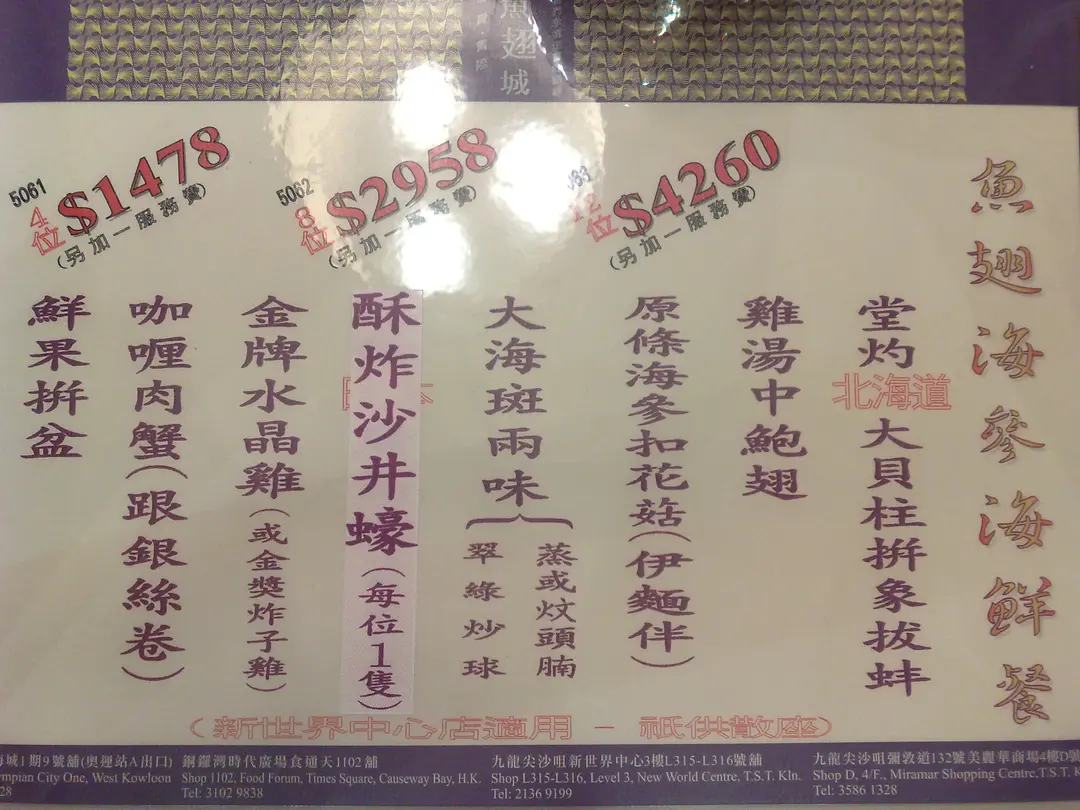 魚翅城
魚翅海參海鮮餐
5061
4位
$1478
(另加一服務費)
5062
8位
$2958
(另加一服務費)
12位
$4260
(另加一服務費)
堂灼北海道大貝柱拼象拔蚌
雞湯中鮑翅
原條海參扣花菇(伊麵伴)
大海斑兩味
蒸或炆頭腩
翠綠炒球
酥炸沙井蠔(每位1隻)
金牌水晶雞(或金獎炸子雞)
咖喱肉蟹(跟銀絲卷)
鮮果拼盆
(新世界中心店適用 - 祇供散座)
海城1期9號舖(奧運站A出口)
Olympian City One, West Kowloon
銅鑼灣時代廣場食通天1102舖
Shop 1102, Food Forum, Times Square, Causeway Bay, H.K.
Tel: 3102 9838
九龍尖沙咀新世界中心3樓L315-L316號舖
Shop L315-L316, Level 3, New World Centre, T.S.T. Kln.
Tel: 2136 9199
九龍尖沙咀彌敦道132號美麗華商場4樓D號
Shop D, 4/F., Miramar Shopping Centre,T.S.T.
Tel: 3586 1328